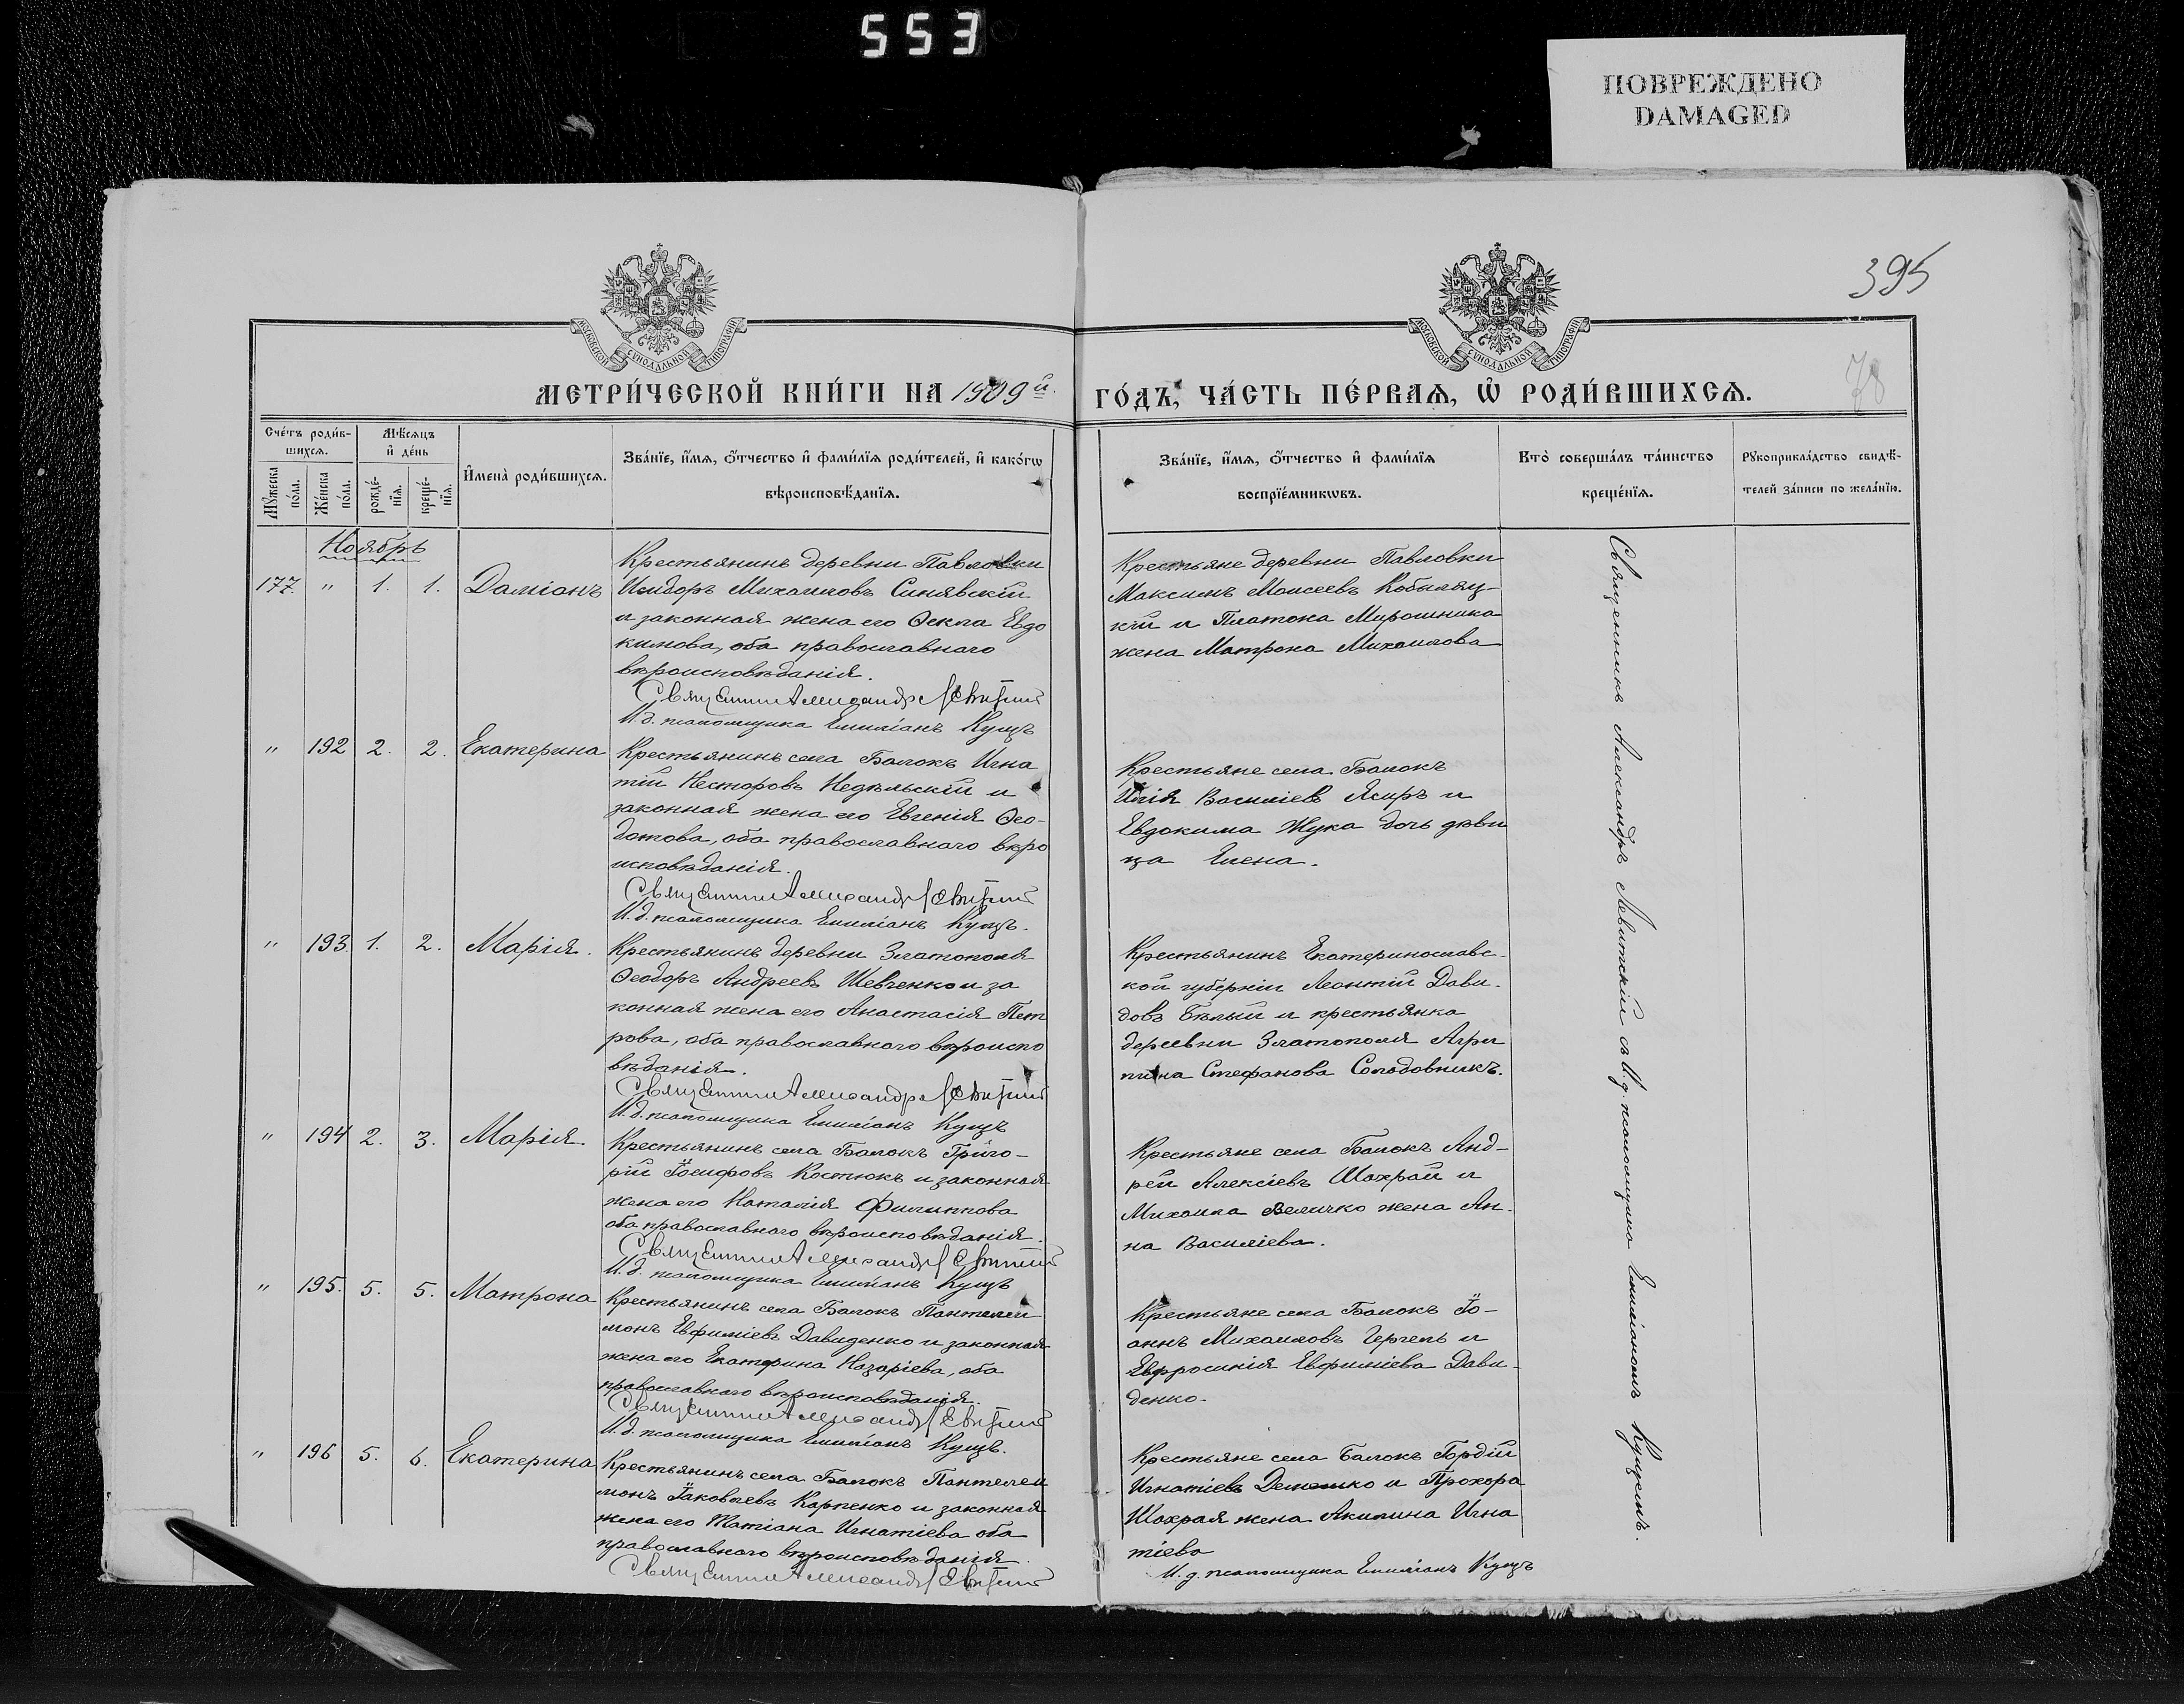 553
ПОВРЕЖДЕНО
DAMAGED
395
78
МОСКОВСКОЙ СѴНОДАЛЬНОЙ ТИПОГРАФІИ
МОСКОВСКОЙ СѴНОДАЛЬНОЙ ТИПОГРАФІИ
МЕТРИ́ЧЕСКОЙ КНИ́ГИ НА 1909й
ГО́ДЪ, ЧА́СТЬ ПЕ́РВАѦ, Ѡ҆ РОДИ́ВШИХСѦ.
Сче́тъ роди́в-
шихсѧ.
Мꙋ́жеска
по́ла.
Же́нска
по́ла.
Мѣ́сѧцъ
и҆ де́нь
рожде́-
нїѧ.
креще́-
нїѧ.
И҆мена̀ роди́вшихсѧ.
Зва́нїе, и҆́мѧ, ѻ҆́тчество и҆ фами́лїѧ роди́телей, и҆ како́гѡ
вѣроисповѣ́данїѧ.
Зва́нїе, и҆́мѧ, ѻ҆́тчество и҆ фами́лїѧ
воспрїе́мникѡвъ.
Кто̀ соверша́лъ та́инство
креще́нїѧ.
Рꙋкоприкла́дство свидѣ́-
телей за́писи по жела́нїю.
Ноябрь
177. " 1. 1. Даміанъ
Крестьянинъ деревни Павловки
Исидоръ Михаиловъ Синявскій
и законная жена его Ѳекла Евдо
кимова, оба православнаго
вѣроисповѣданія.
Священникъ Александръ Левитскій
И. д. псаломщика Емиліанъ Кущъ
Крестьяне деревни Павловки
Максимъ Моисеевъ Кобыляц-
кій и Платона Мирошника
жена Матрона Михаилова
" 192 2. 2. Екатерина
Крестьянинъ села Балокъ Игна
тій Несторовъ Недѣльскій и
законная жена его Евгенія Ѳео-
дотова, оба православнаго вѣро
исповѣданія.
Священникъ Александръ Левитскій
И. д. псаломщика Емиліанъ Кущъ.
Крестьяне села Балокъ
Илія Василіевъ Ясиръ и
Евдокима Жука дочь дѣви
ца Елена.
" 193. 1. 2. Марія.
Крестьянинъ деревни Златополя
Ѳеодоръ Андреевъ Шевченко и за
конная жена его Анастасія Пет
рова, оба православнаго вѣроиспо
вѣданія.
Священникъ Александръ Левитскій
И. д. псаломщика Емиліанъ Кущъ
Крестьянинъ Екатеринославс-
кой губерніи Леонтій Дави-
довъ Бѣлый и крестьянка
деревни Златополя Агри
пина Стефанова Солодовникъ.
" 194 2. 3. Марія
Крестьянинъ села Балокъ Григо-
рій Іосифовъ Костюкъ и законная
жена его Наталія Филиппова
оба православнаго вѣроисповѣданія.
Священникъ Александръ Левитскій
И. д. псаломщика Емиліанъ Кущъ
Крестьяне села Балокъ Анд-
рей Алексіевъ Шахрай и
Михаила Величко жена Ан-
на Василіева.
" 195. 5. 5. Матрона
Крестьянинъ села Балокъ Пантелеи
монъ Евфиміевъ Давиденко и законная
жена его Екатерина Назаріева, оба
православнаго вѣроисповѣданія.
Священникъ Александръ Левитскій
И. д. псаломщика Емиліанъ Кущъ.
Крестьяне села Балокъ Іо-
аннъ Михаиловъ Гергель и
Евфросинія Евфиміева Дави-
денко.
" 196 5. 6. Екатерина
Крестьянинъ села Балокъ Пантелеи
монъ Іаковлевъ Карпенко и законная
жена его Татіана Игнатіева оба
православнаго вѣроисповѣданія.
Священникъ Александръ Левитскій
Крестьяне села Балокъ Гордій
Игнатіевъ и Прохора
Шахрая жена Акилина Игна
тіева
И. д. псаломщика Емиліанъ Кущъ
Священникъ Александръ Левитскій съ И. д. псаломщика Емиліаномъ Кущемъ.